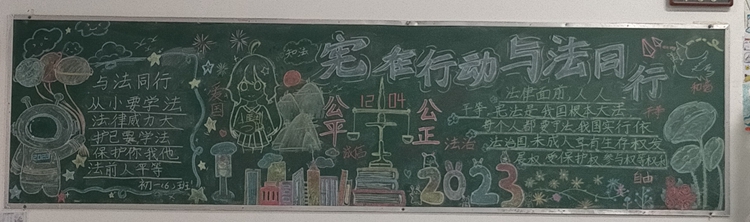 宪在行动与法同行
与法同行
从小要学法
法律威力大
护己要学法
保护你我他
法前人平等
初一(6)班
爱国
和法
公平
12 04
公正
诚信
法治
2023
法律面前人人
平等,宪法是我国根本大法
人人都要守法我国实行依
法治国未成人享有生存权发
展权受保护权参与权等权
和谐
自由